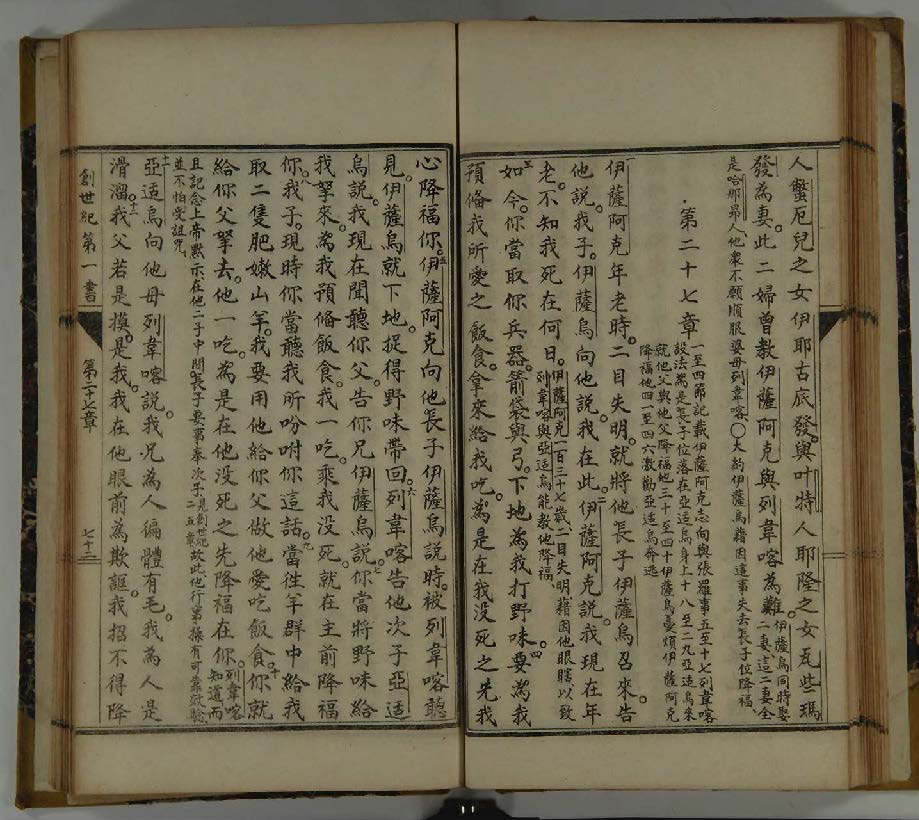 人鼈厄兒之女伊耶古底發與叶特人耶隆之女瓦些瑪
發為妻此二婦曾教伊薩阿克與列韋喀為難伊薩烏同時娶二妻這二妻全
是哈那昂人他衆不願順服婆母列韋喀〇大約伊薩烏藉因這事失去長子位降福
第二十七章
一至四節記載伊薩阿克志向與張羅事五至十七列韋喀
設法為是長子位落在亞适烏身上十八至二九亞适烏來
就他父與他父降福他三十至四十伊薩烏憂煩伊薩阿克
降福他四一至四六激勸亞适烏奔逃
一伊薩阿克年老時二目失明就將他長子伊薩烏召來告
他說我子伊薩烏向他說我在此二伊薩阿克說我現在年
老不知我死在何日伊薩阿克一百三十七歲二目失明藉因他眼瞎以致列韋喀與亞适烏能教他降福三
如今你當取你兵器箭袋與弓下地為我打野味四要為我
預備我所愛之飯食拿來給我吃為是在我沒死之先我
心降福你五伊薩阿克向他長子伊薩烏說時被列韋喀聽
見伊薩烏就下地捉得野味帶回六列韋喀告他次子亞适
烏說我現在聞聽你父告你兄伊薩烏說七你當將野味給
我拏來為我預備飯食我一吃乘我沒死就在主前降福
你八我子現時你當聽我所吩咐你這話九當徃羊群中給我
取二隻肥嫩山羊我要用他給你父做他愛吃飯食十你就
給你父拏去他一吃為是在他沒死之先降福在你列韋喀知道而
且記念上帝默示在他二子中間長子要事奉次子見創世紀二五章故此他行事操有可靠效驗
並不怕受詛咒
十一亞适烏向他母列韋喀說我兄為人徧體有毛我為人是
滑溜十二我父若是摸是我我在他眼前為欺誆我招不得降
創世紀第一書
第二十七章
七十三